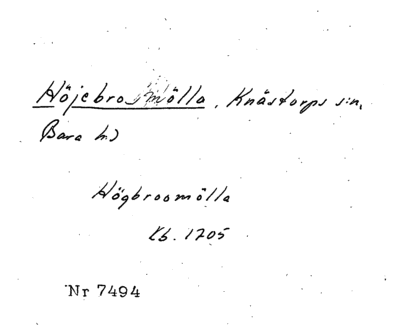 Höjebromölla, Knästorps s:n,
Bara hd
Högbroomölla
Kb. 1705
Nr 7494